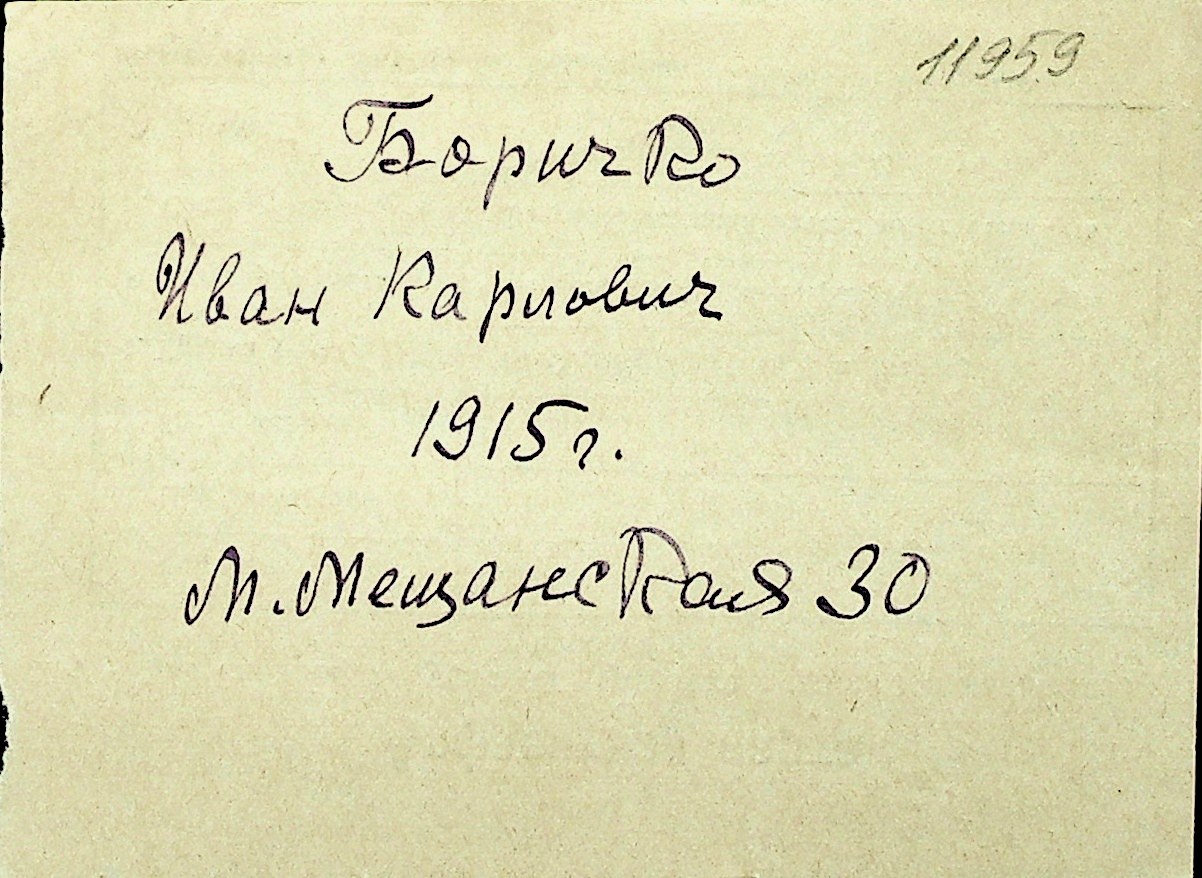 11959
Боричко
Иван Карлович
1915г.
М. Мещанская 30